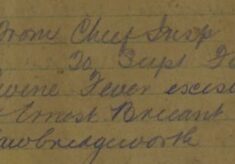 From Chief Insp
To Supt
wine Fever
Ernest Bryant
awbridgeworth